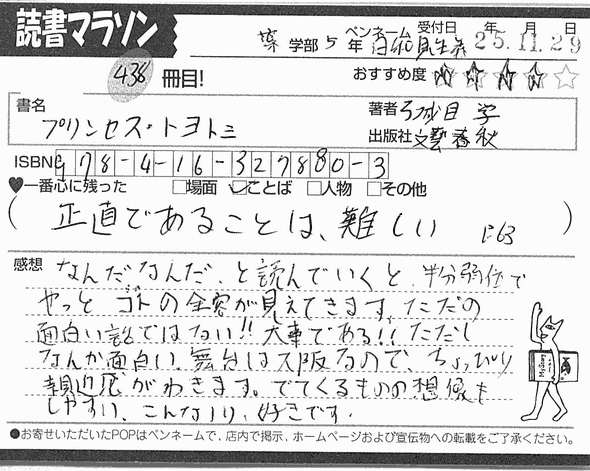 読書マラソン
436 冊目!
薬 学部 5 年 ペンネーム 受付日 25年 11月 29日
おすすめ度 ★★★★☆
書名 プリンセス・トヨトミ
著者 万城目 学
出版社 文藝春秋
ISBN 978-4-16-327880-3
♥一番心に残った □場面 ☑ことば □人物 □その他
(正直であることは、難しい P.63)
感想 なんだなんだ、と読んでいくと、半分弱位で
やっと コトの全容が見えてきます。ただの
面白い話ではない!! 大事である!! ただし
なんか面白い。舞台は大阪なので、ちょっぴり
親近感がわきます。でてくるものの想像も
しやすい、こんなノリ、好きです。
Mystery
●お寄せいただいたPOPはペンネームで、店内で掲示、ホームページおよび宣伝物への転載をご了承ください。